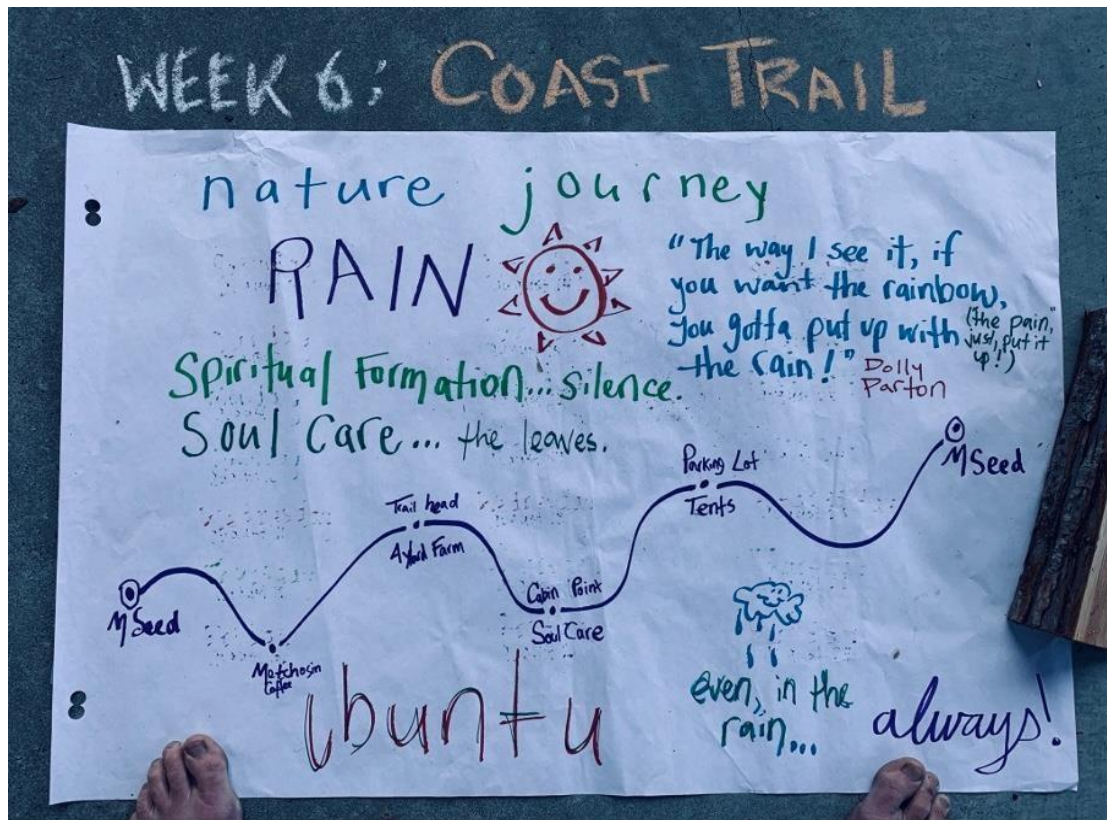 WEEK 6: COAST TRAIL
nature journey
RAIN
"The way I see it, if
you want the rainbow,
you gotta put up with
the rain!"
(the pain,"
just, put it
up!")
Dolly
Parton
Spiritual Formation... silence.
Soul Care... the leaves.
M Seed
Metchosin
Coffee
Trail head
Aylard Farm
Cabin Point
Soul Care
Parking Lot
Tents
M Seed
ubuntu
even, in the
rain...
always!